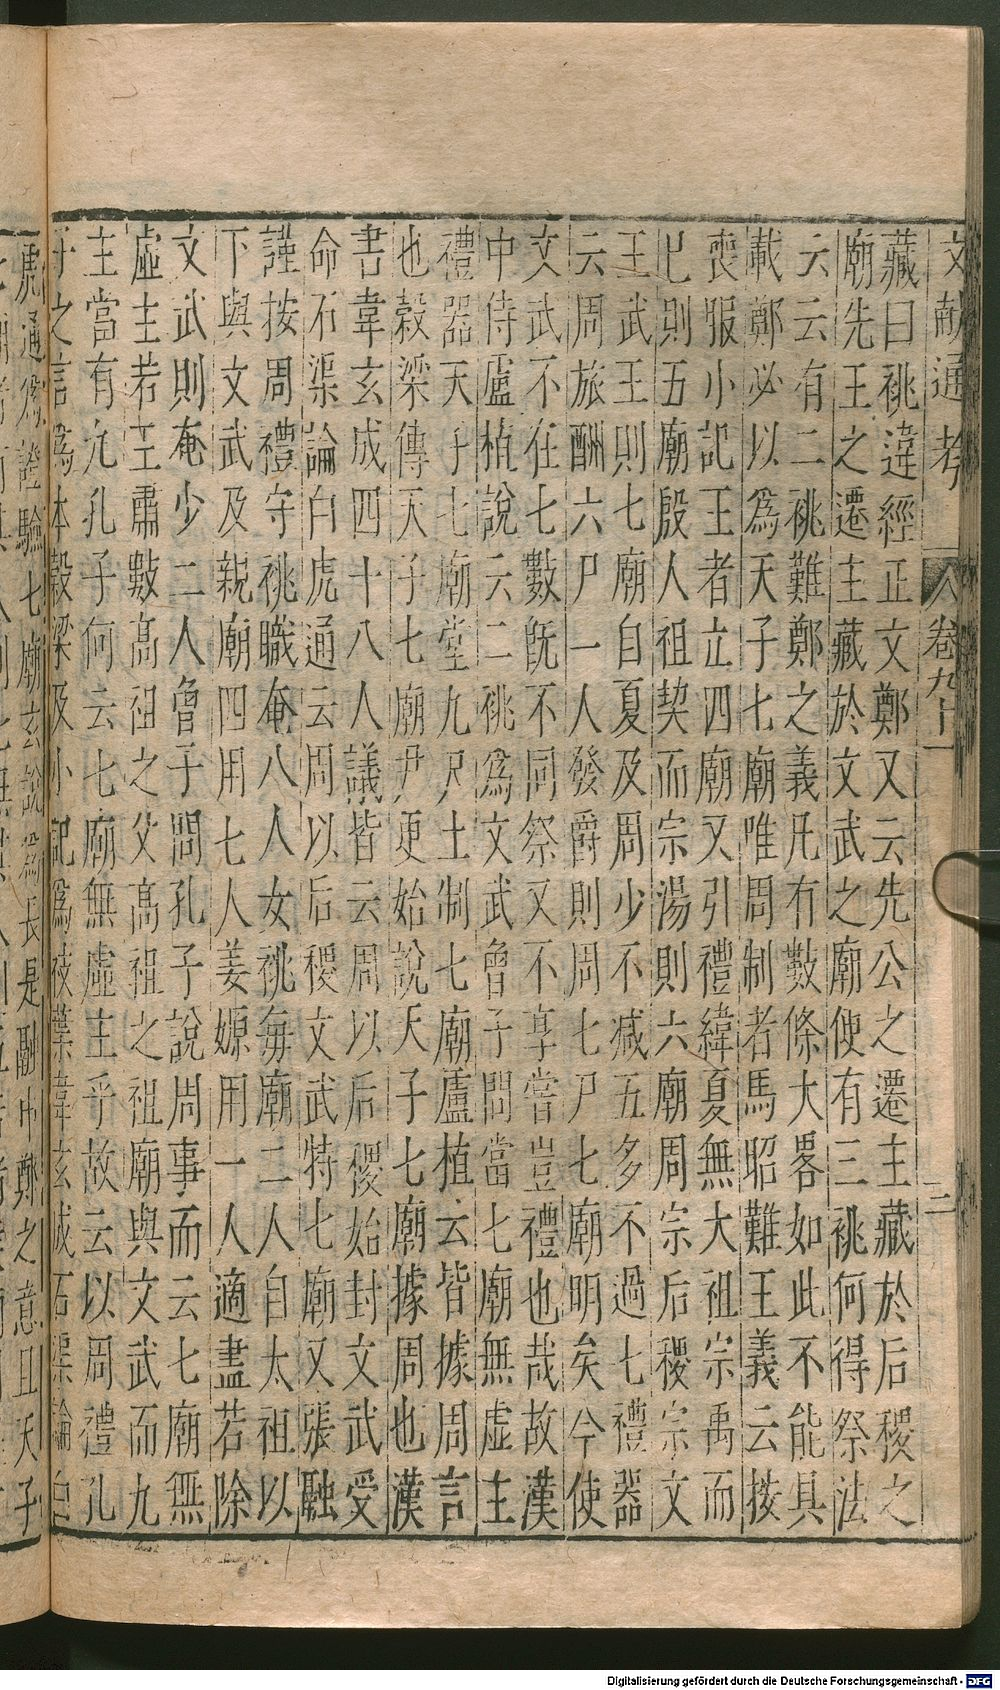 文獻通考 卷九十一 二
藏曰祧違經正文鄭又云先公之遷主藏於后稷之
廟先王之遷主藏於文武之廟使有三祧何得祭法
云云有二祧難鄭之義凡有數條大畧如此不能具
載鄭必以爲天子七廟唯周制者馬昭難王義云按
喪服小記王者立四廟又引禮緯夏無大祖宗禹而
巳則五廟殷人祖契而宗湯則六廟周宗后稷宗文
王武王則七廟自夏及周少不减五多不過七禮器
云周旅酬六尸一人發爵則周七尸七廟明矣今使
文武不在七數旣不同祭又不享嘗豈禮也哉故漢
中侍盧植說云二祧爲文武曾子問當七廟無虛主
禮器天子七廟堂九尺土制七廟盧植云皆據周言
也穀梁傳天子七廟尹更始說天子七廟據周也漢
書韋玄成四十八人議皆云周以后稷始封文武受
命石渠論白虎通云周以后稷文武特七廟又張融
謹按周禮守祧職奄八人女祧每廟二人自太祖以
下與文武及親廟四用七人姜嫄用一人適盡若除
文武則奄少二人曾子問孔子說周事而云七廟無
虛主若王肅數高祖之父高祖之祖廟與文武而九
主當有九孔子何云七廟無虛主乎故云以周禮孔
子之言爲本穀梁及小記爲枝葉韋玄成石渠論白
虎通爲證驗七廟玄說爲長是融申鄭之意且天子
Digitalisierung gefördert durch die Deutsche Forschungsgemeinschaft - DFG